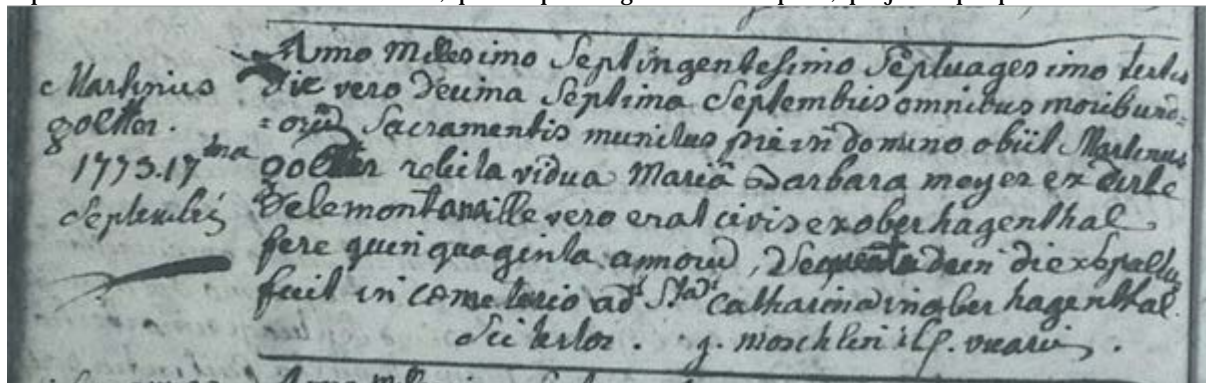 Martinus
goltter.
1773. 17ma
Septembris
Anno Millesimo Septingentesimo Septuagesimo tertio
die vero decima Septima Septembris omnibus moribund=
=orum Sacramentis munitus pie in domino obiit Martinus
relicta vidua Maria Barbara moyer ex urbe
Delemontana ille vero erat civis ex oberhagenthal
fere quinquaginta annorum, Sequenti dein die sepultus
fuit in cometerio ad Stam Catharinam in ober hagenthal.
g. moschlin vicarius.